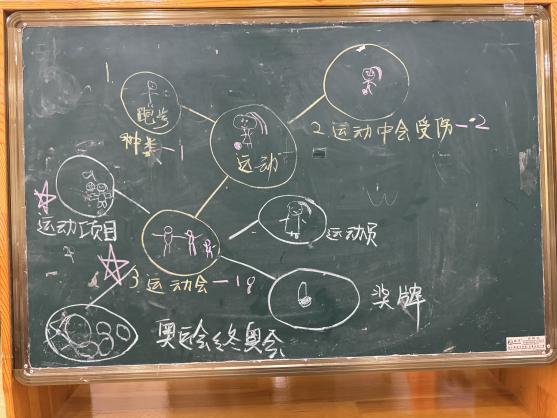 1.
跑步
种类-1
运动
2 运动中会受伤-2
运动项目
运动员
3 运动会-18
奖牌
奥运会终奥会